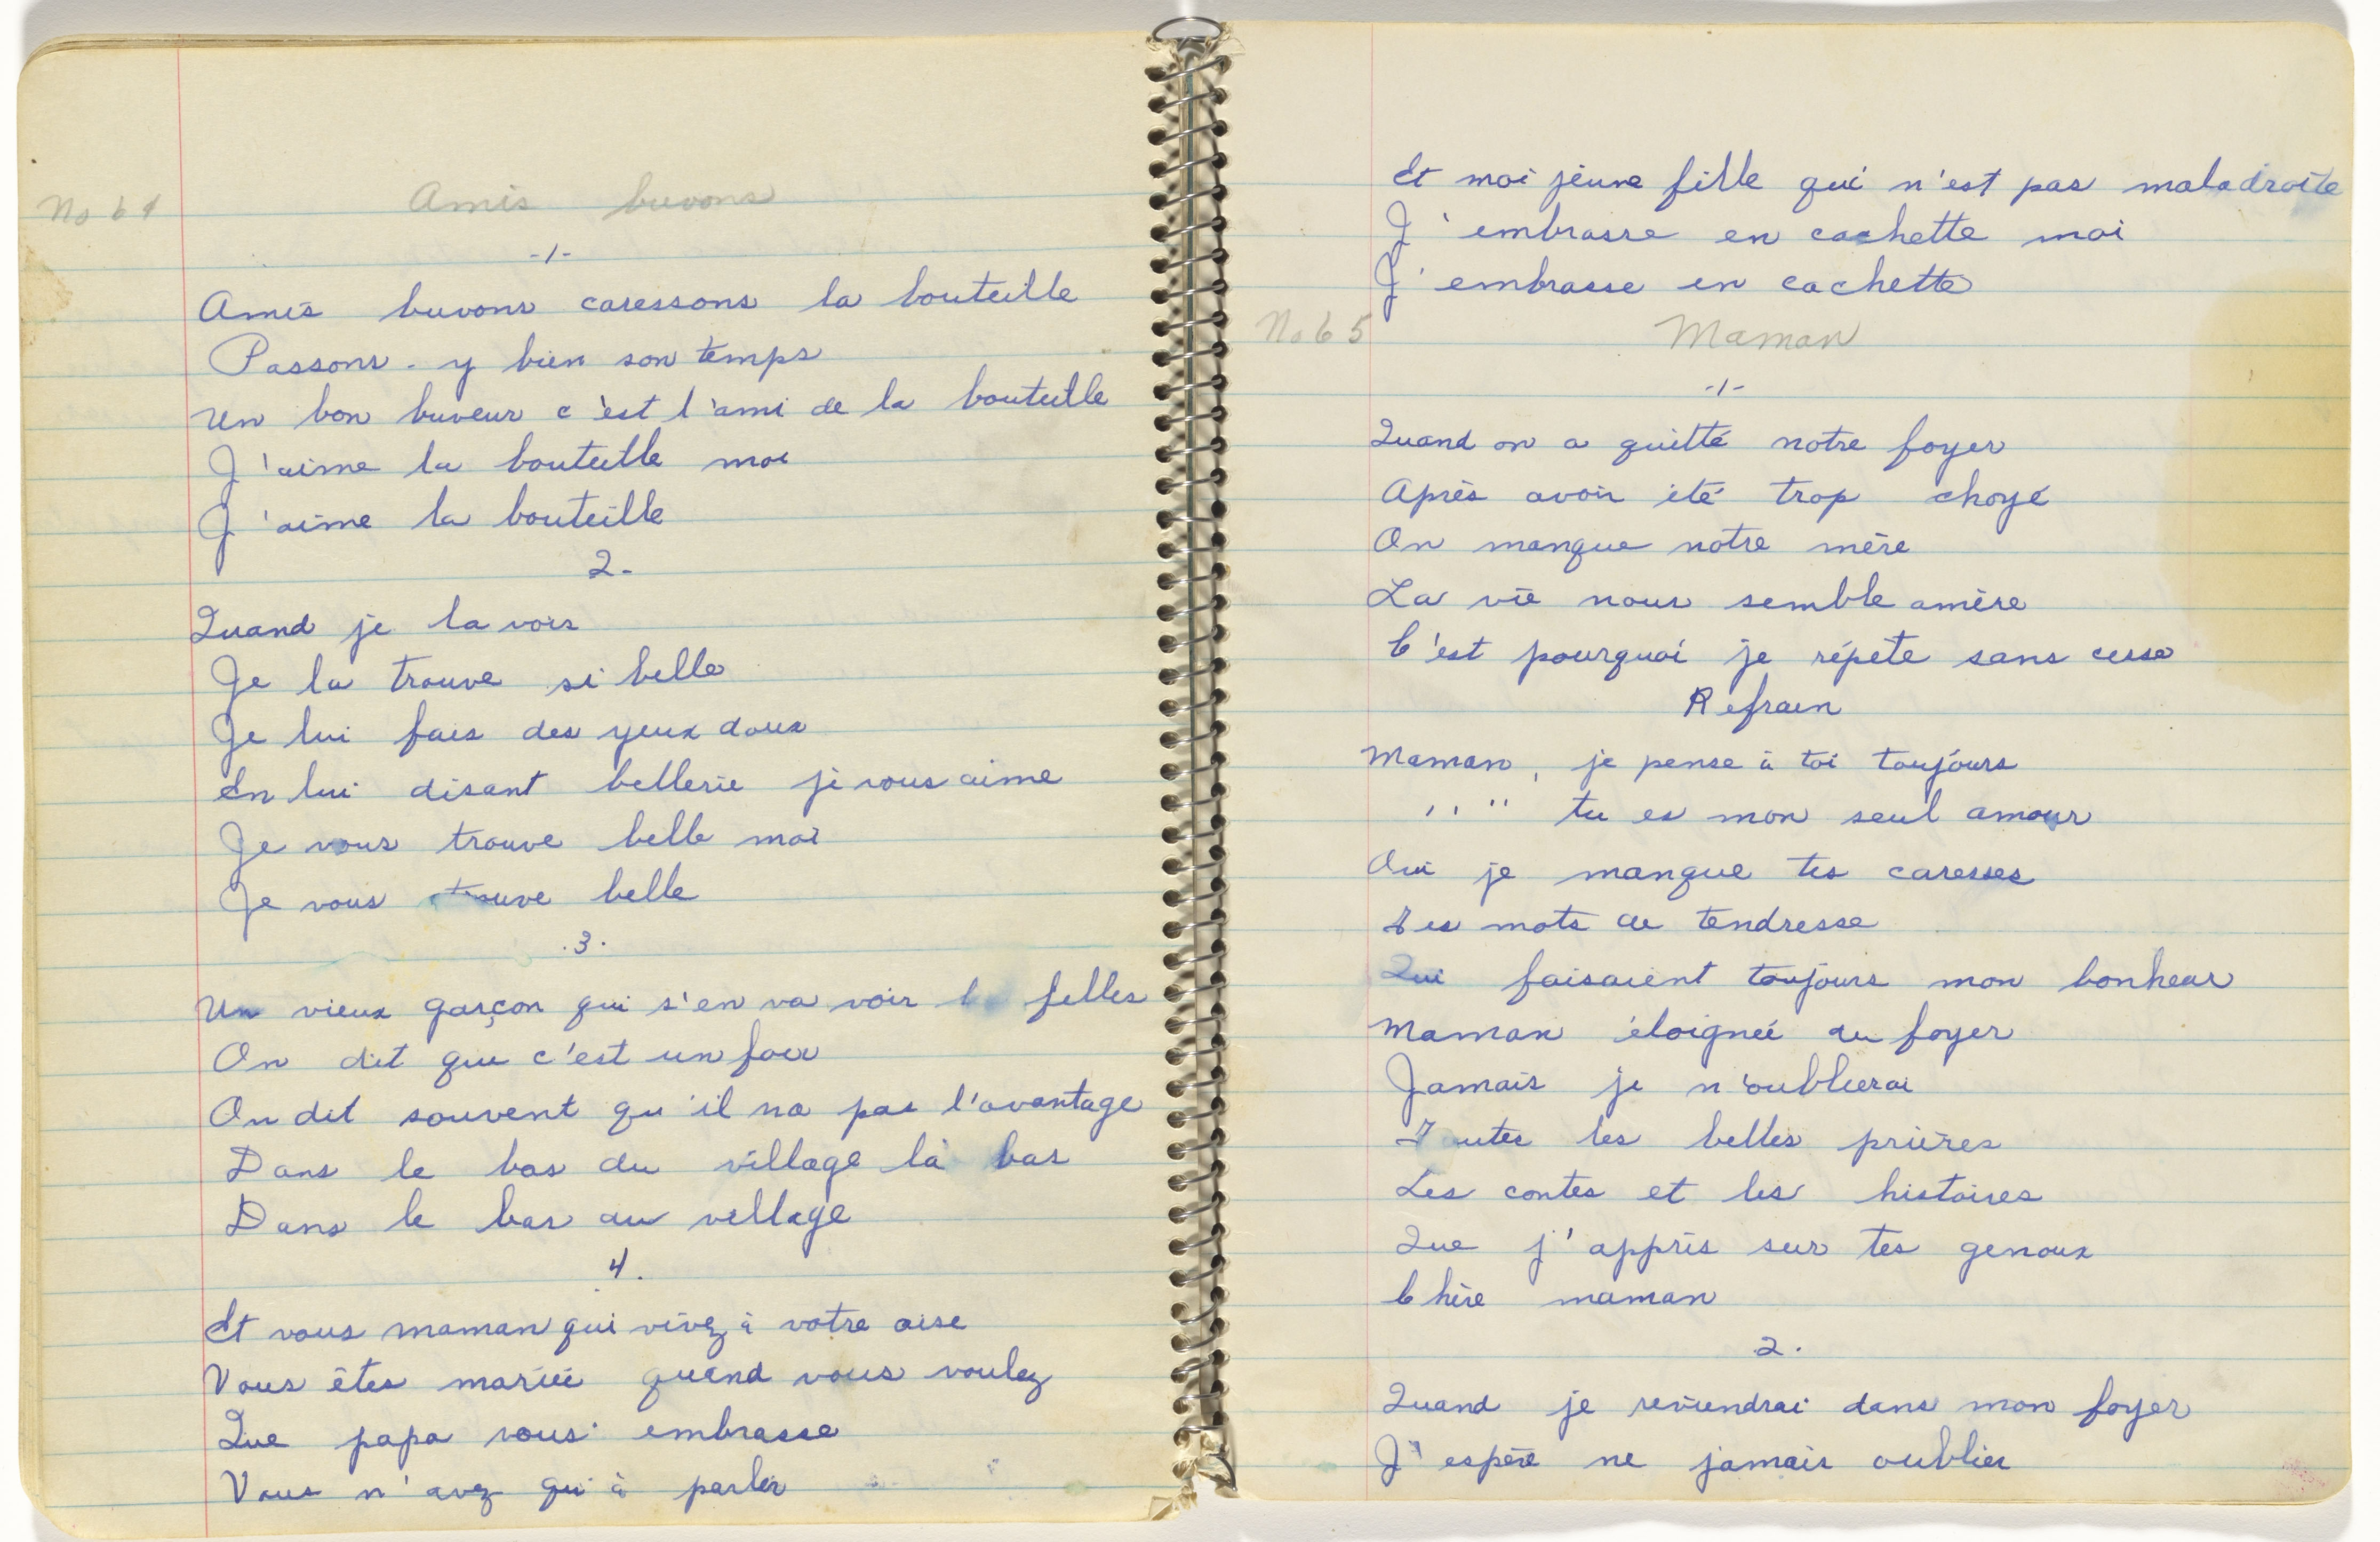 No 64 Amis buvons
-1-
Amis buvons caressons la bouteille
Passons-y bien son temps
Un bon buveur c'est l'ami de la bouteille
J'aime la bouteille moi
J'aime la bouteille
2-
Quand je la vois
Je la trouve si belle
Je lui fais des yeux doux
En lui disant bellerie je vous aime
Je vous trouve belle moi
Je vous trouve belle
.3.
Un vieux garçon qui s'en va voir filles
On dit que c'est un fou
On dit souvent qu'il na pas l'avantage
Dans le bas du village là bas
Dans le bas du village
4.
Et vous maman qui vivez à votre aise
Vous êtes mariée quand vous voulez
Que papa vous embrasse
Vous n'avez qu'à parler
Et moi jeune fille qui n'est pas maladroite
J'embrasse en cachette moi
J'embrasse en cachette
No 65 Maman
-1-
Quand on a quitté notre foyer
Après avoir été trop choyé
On manque notre mère
La vie nous semble amère
C'est pourquoi je répète sans cesse
Refrain
Maman, je pense à toi toujours
'' '' tu es mon seul amour
Oui je manque tes caresses
Tes mots de tendresse
Qui faisaient toujours mon bonheur
Maman éloignée du foyer
Jamais je n'oublierai
Toutes les belles prières
Les contes et les histoires
Que j'appris sur tes genoux
Chère maman
2.
Quand je reviendrai dans mon foyer
J'espère ne jamais oublier